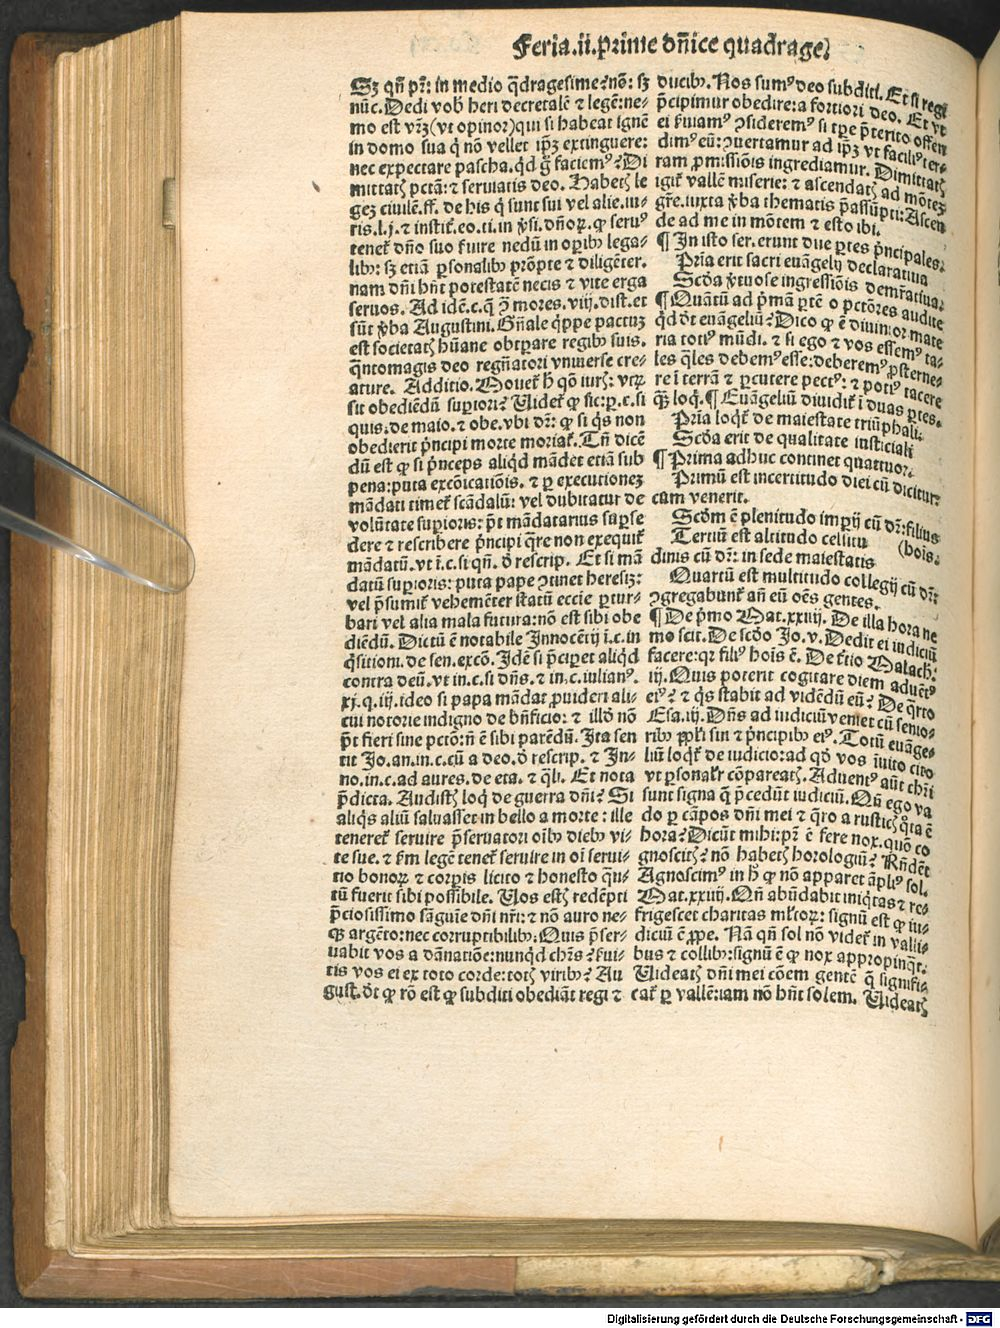 Feria.ii.prime dñice quadrage.
Sꝫ qñ pr̃: in medio q̃dragesime? nõ: sꝫ
nũc. Dedi vob̃ heri decretalẽ ⁊ legẽ: ne-
mo est vr̃ꝫ (vt opinor) qui si habeat ignẽ
in domo sua q̃ nõ vellet ip̃ꝫ extinguere:
nec expectare pascha. qd̃ g̃ faciem⁹? Di
mittatꝭ pctã: ⁊ seruiatis deo. Habetꝭ le
geꝫ ciuilẽ. ff. de his q̃ sunt sui vel alie. iu-
ris. l.j. ⁊ instit̃. eo. ti. in v̾si. dñoꝝ. ꝙ seru⁹
tenet̃ dño suo ẜuire nedũ in oꝑibꝰ lega-
libꝰ: sꝫ etiã ꝑsonalibꝰ prõpte ⁊ diligẽter.
nam dñi hñt potestatẽ necis ⁊ vite erga
seruos. Ad idẽ. c. q̃ ꝯ̃ mores. viij. dist. et
sũt v̾ba Augustini. Gñale q̃ppe pactuꝫ
est societatꝭ hũane obtꝑare regibꝰ suis.
q̃ntomagis deo regñatori vniuerse cre-
ature. Additio. Mouet̃ h̃ qõ iurꝭ: vtꝝ
sit obediẽdũ suꝑiori? Videt̃ ꝙ sic: ꝑ. c. si
quis. de maio. ⁊ obe. vbi dr̃: ꝙ si q̃s non
obedierit p̃ncipi morte moriat̃. Tñ dicẽ
dũ est ꝙ si p̃nceps aliqd̃ mãdet etiã sub
pena: puta excõicatiõis. ⁊ ꝑ executioneꝫ
mãdati timet̃ scãdalũ: vel dubitatur de
volũtate suꝑioris: p̃t mãdatarius suꝑse
dere ⁊ rescribere p̃ncipi q̃re non exequit̃
mãdatũ. vt ĩ. c. si qñ. ð rescrip. Et si mã
datũ suꝑioris: puta pape ꝯtinet heresiꝫ:
vel p̃sumit̃ vehemẽter statũ eccie ꝑtur-
bari vel alia mala futura: nõ est sibi obe
diẽdũ. Dictũ ẽ notabile Innocẽtij ĩ. c. in
q̃sitioni. de sen. excõ. Idẽ si p̃cipet aliqd̃
contra deũ. vt in. c. si dñs. ⁊ in. c. iulian⁹.
xj. q. iij. ideo si papa mãdat ꝓuideri ali-
cui notorie indigno de bñficio: ⁊ illð nõ
p̃t fieri sine pctõ: ñ ẽ sibi parẽdũ. Ita sen
tit Jo. an. in. c. cũ a deo. ð rescrip. ⁊ In-
no. in. c. ad aures. de eta. ⁊ q̃li. Et nota
p̃dicta. Audistꝭ loq̃ de guerra dñi? Si
aliq̃s aliũ saluasset in bello a morte: ille
teneret̃ seruire p̃seruatori oĩbꝰ diebꝰ vi-
te sue. ⁊ ẜm legẽ tenet̃ seruire in oĩ serui-
tio bonoꝝ ⁊ corꝑis licito ⁊ honesto q̃n-
tũ fuerit sibi possibile. Uos estꝭ redẽpti
p̃ciosissimo sãguĩe dñi nr̃i: ⁊ nõ auro ne-
qꝫ argẽto: nec corruptibilibꝰ. Quis p̃ser-
uabit vos a dãnatiõe: nunqd̃ chr̃s? ẜui-
tis vos ei ex toto corde: totꝭ viribꝰ? Au
gust. ðt ꝙ rõ est ꝙ subditi obediãt regi ⁊
ducibꝰ. Nos sum⁹ deo subditi. Et si regi
p̃cipimur obedire: a fortiori deo. Et vt
ei ẜuiam⁹ ꝯsiderem⁹ si tꝑe p̃terito offen
dim⁹ eũ: ꝯuertamur ad ip̃ꝫ vt facili⁹ ter-
ram ꝓmissiõis ingrediamur. Dimittatꝭ
igit̃ vallẽ miserie: ⁊ ascendatꝭ ad mõteꝫ
gr̃e. iuxta v̾ba thematis p̃assũpti: Ascen
de ad me in mõtem ⁊ esto ibi.
¶ In isto ser. erunt due ꝑtes p̃ncipales.
Prĩa erit sacri euãgelij declaratiua
Scða v̾tuose ingressiõis demr̃atiua.
¶ Quãtũ ad p̃mã ꝑtẽ o pctõres audite
qd̃ ðt euãgeliũ? Dico ꝙ ẽ diuinior mate
ria toti⁹ mũdi. ⁊ si ego ⁊ vos essem⁹ ta-
les q̃les debem⁹ esse: deberem⁹ ꝓsterne-
re ĩ terrã ⁊ ꝑcutere pect⁹: ⁊ poti⁹ tacere
qꝫ loq̃. ¶ Euãgeliũ diuidit̃ ĩ duas ꝑtes.
Prĩa loqt̃ de maiestate triũphali.
Scða erit de qualitate iusticiali
¶ Prima adhuc continet quattuor.
Primũ est incertitudo diei cũ dicitur:
cum venerit.
Scðm ẽ plenitudo imꝑij cũ dr̃: filius
Tertiũ est altitudo celsitu (hoĩs.
dinis cũ dr̃: in sede maiestatis
Quartũ est multitudo collegij cũ dr̃:
ꝯgregabunt̃ añ eũ oẽs gentes.
¶ De p̃mo Mat. xxiiij. De illa hora ne
mo scit. De scðo Jo. v. Dedit ei iudiciũ
facere: qꝛ fili⁹ hoĩs ẽ. De t̃tio Malach.
iij. Quis poterit cogitare diem aduẽt⁹
ei⁹? ⁊ q̃s stabit ad vidẽdũ eũ? De q̃rto
Esa. iij. Dñs ad iudiciũ veniet cũ senio-
ribꝰ ppl̃i sui ⁊ p̃ncipibꝰ ei⁹. Totũ euãge-
liũ loqt̃ de iudicio: ad qð vos ĩuito cito
vt ꝑsonalr̃ cõpareatꝭ. Aduent⁹ aũt chr̃i
sunt signa q̃ p̃cedũt iudiciũ. Qñ ego va
do ꝑ cãpos dñi mei ⁊ q̃ro a rusticꝭ q̃ta ẽ
hora? Dicũt mihi: pr̃ ẽ fere nox. quõ co
gnoscitꝭ? nõ habetꝭ horologiũ? Rñdẽt
Agnoscim⁹ in h̃ ꝙ nõ apparet ãpli⁹ sol.
Mat. xxiiij. Qñ abũdabit iniq̃tas ⁊ re-
frigescet charitas ml̃toꝝ: signũ est ꝙ iu-
diciũ ẽ ꝓpe. Nã qñ sol nõ videt̃ in valli-
bus ⁊ collibꝰ: signũ ẽ ꝙ nox appropinq̃t.
Uideatꝭ dñi mei cõem gentẽ q̃ signifi-
cat̃ ꝑ vallẽ: iam nõ hñt solem. Uideatꝭ
Digitalisierung gefördert durch die Deutsche Forschungsgemeinschaft - DFG